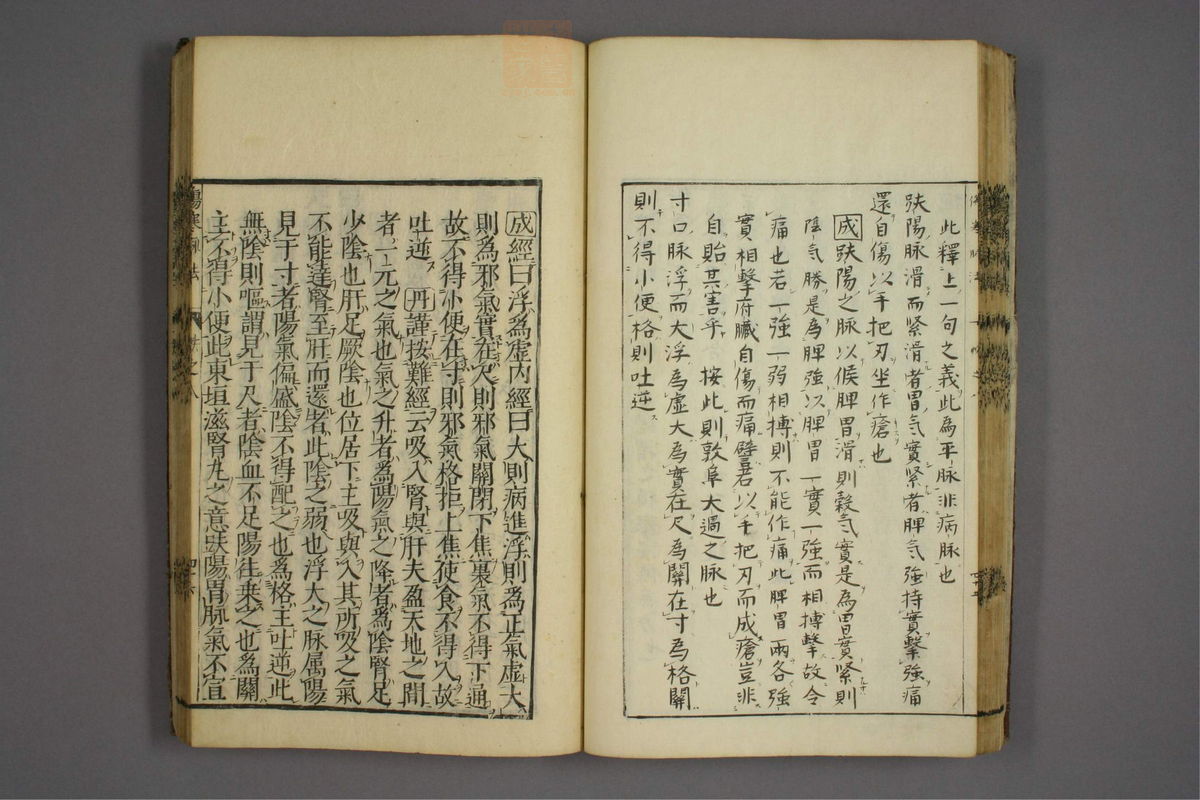 此釋上一句之義此為平脉非病脉也
趺陽脉滑而緊滑者胃氣實緊者脾氣強持實擊強痛
還自傷以手把刃坐作瘡也
成 趺陽之脉以候脾胃滑則穀氣實是為胃實緊則
陰氣勝是為脾強以脾胃一實一強而相搏擊故令
痛也若一強一弱相搏則不能作痛此脾胃兩各強
實相擊府臓自傷而痛譬若以手把刃而成瘡豈非
自貽其害乎 按此則敦阜大過之脉也
寸口脉浮而大浮為虛大為實在尺為關在寸為格關
則不得小便格則吐逆
成 經曰浮為虛内經曰大則病進浮則為正氣虛大
則為邪氣實在尺則邪氣關閉下焦裏氣不得下通
故不得小便在寸則邪氣格拒上焦使食不得入故
吐逆 丹 謹按難經云吸入腎與肝夫盈天地之間
者一元之氣也氣之升者為陽氣之降者為陰腎足
少陰也肝足厥陰也位居下主吸與入其所吸之氣
不能達腎至肝而還者此陰之弱也浮大之脉属陽
見于寸者陽氣偏盛陰不得配之也為格主吐逆此
無陰則嘔謂見于尺者陰血不足陽往乗之也為關
主不得小便此東垣滋腎丸之意趺陽胃脉氣不宜
傷寒脉法